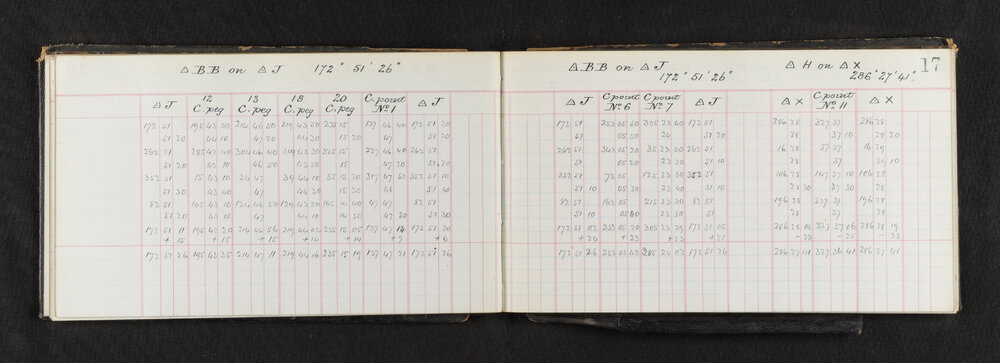 △ BB on △ J 172° 51' 26"
12 13 18 20 C.point
△ J C.peg C.peg C.peg C.peg No 1 △ J
172 51 195 43 30 214 46 50 219 43 50 235 15 137 46 40 172 51 30
51 20 44 10 47 20 44 30 15 20 47 51 20
262 51 285 43 40 304 46 40 309 43 30 325 15 227 46 40 262 51
51 20 43 10 46 50 43 50 15 47 20 51 20
352 51 15 43 10 34 47 39 44 10 55 15 20 317 47 50 352 51 10
51 30 43 40 47 44 30 15 30 48 51 40
82 51 105 43 10 124 46 50 129 43 50 145 14 40 47 47 82 51
51 20 43 10 47 44 10 14 50 47 20 51 30
172 51 11 195 43 20 214 46 56 219 44 02 235 15 05 137 47 14 172 51 20
+ 15 + 15 + 15 + 14 + 14 + 7 + 6
172 51 26 195 43 35 214 47 11 219 44 16 235 15 19 137 47 21 172 51 26
17
△ BB on △ J 172° 51' 26" △ H on △ X 286° 27' 41"
C.point C.point C.point
△ J No 6 No 7 △ J △ X No 11 △ X
172 51 253 05 50 305 23 40 172 51 286 28 327 37 286 28
51 05 50 24 51 20 28 37 10 28 20
262 51 343 05 20 35 23 30 262 51 16 28 57 37 16 29
51 05 20 23 30 51 10 28 37 29 10
352 51 73 05 125 23 30 352 51 106 28 147 37 10 106 28
51 10 05 20 23 40 51 10 28 30 37 30 28
82 51 163 05 215 23 30 82 51 196 28 237 37 196 28
51 10 05 00 23 30 51 28 37 28
172 51 02 253 05 20 305 23 39 172 51 05 286 28 04 327 37 06 286 28 19
+ 24 + 23 + 23 + 21 - 23 - 25 - 38
172 51 26 253 05 43 305 24 02 172 51 26 286 27 41 327 36 41 286 27 41